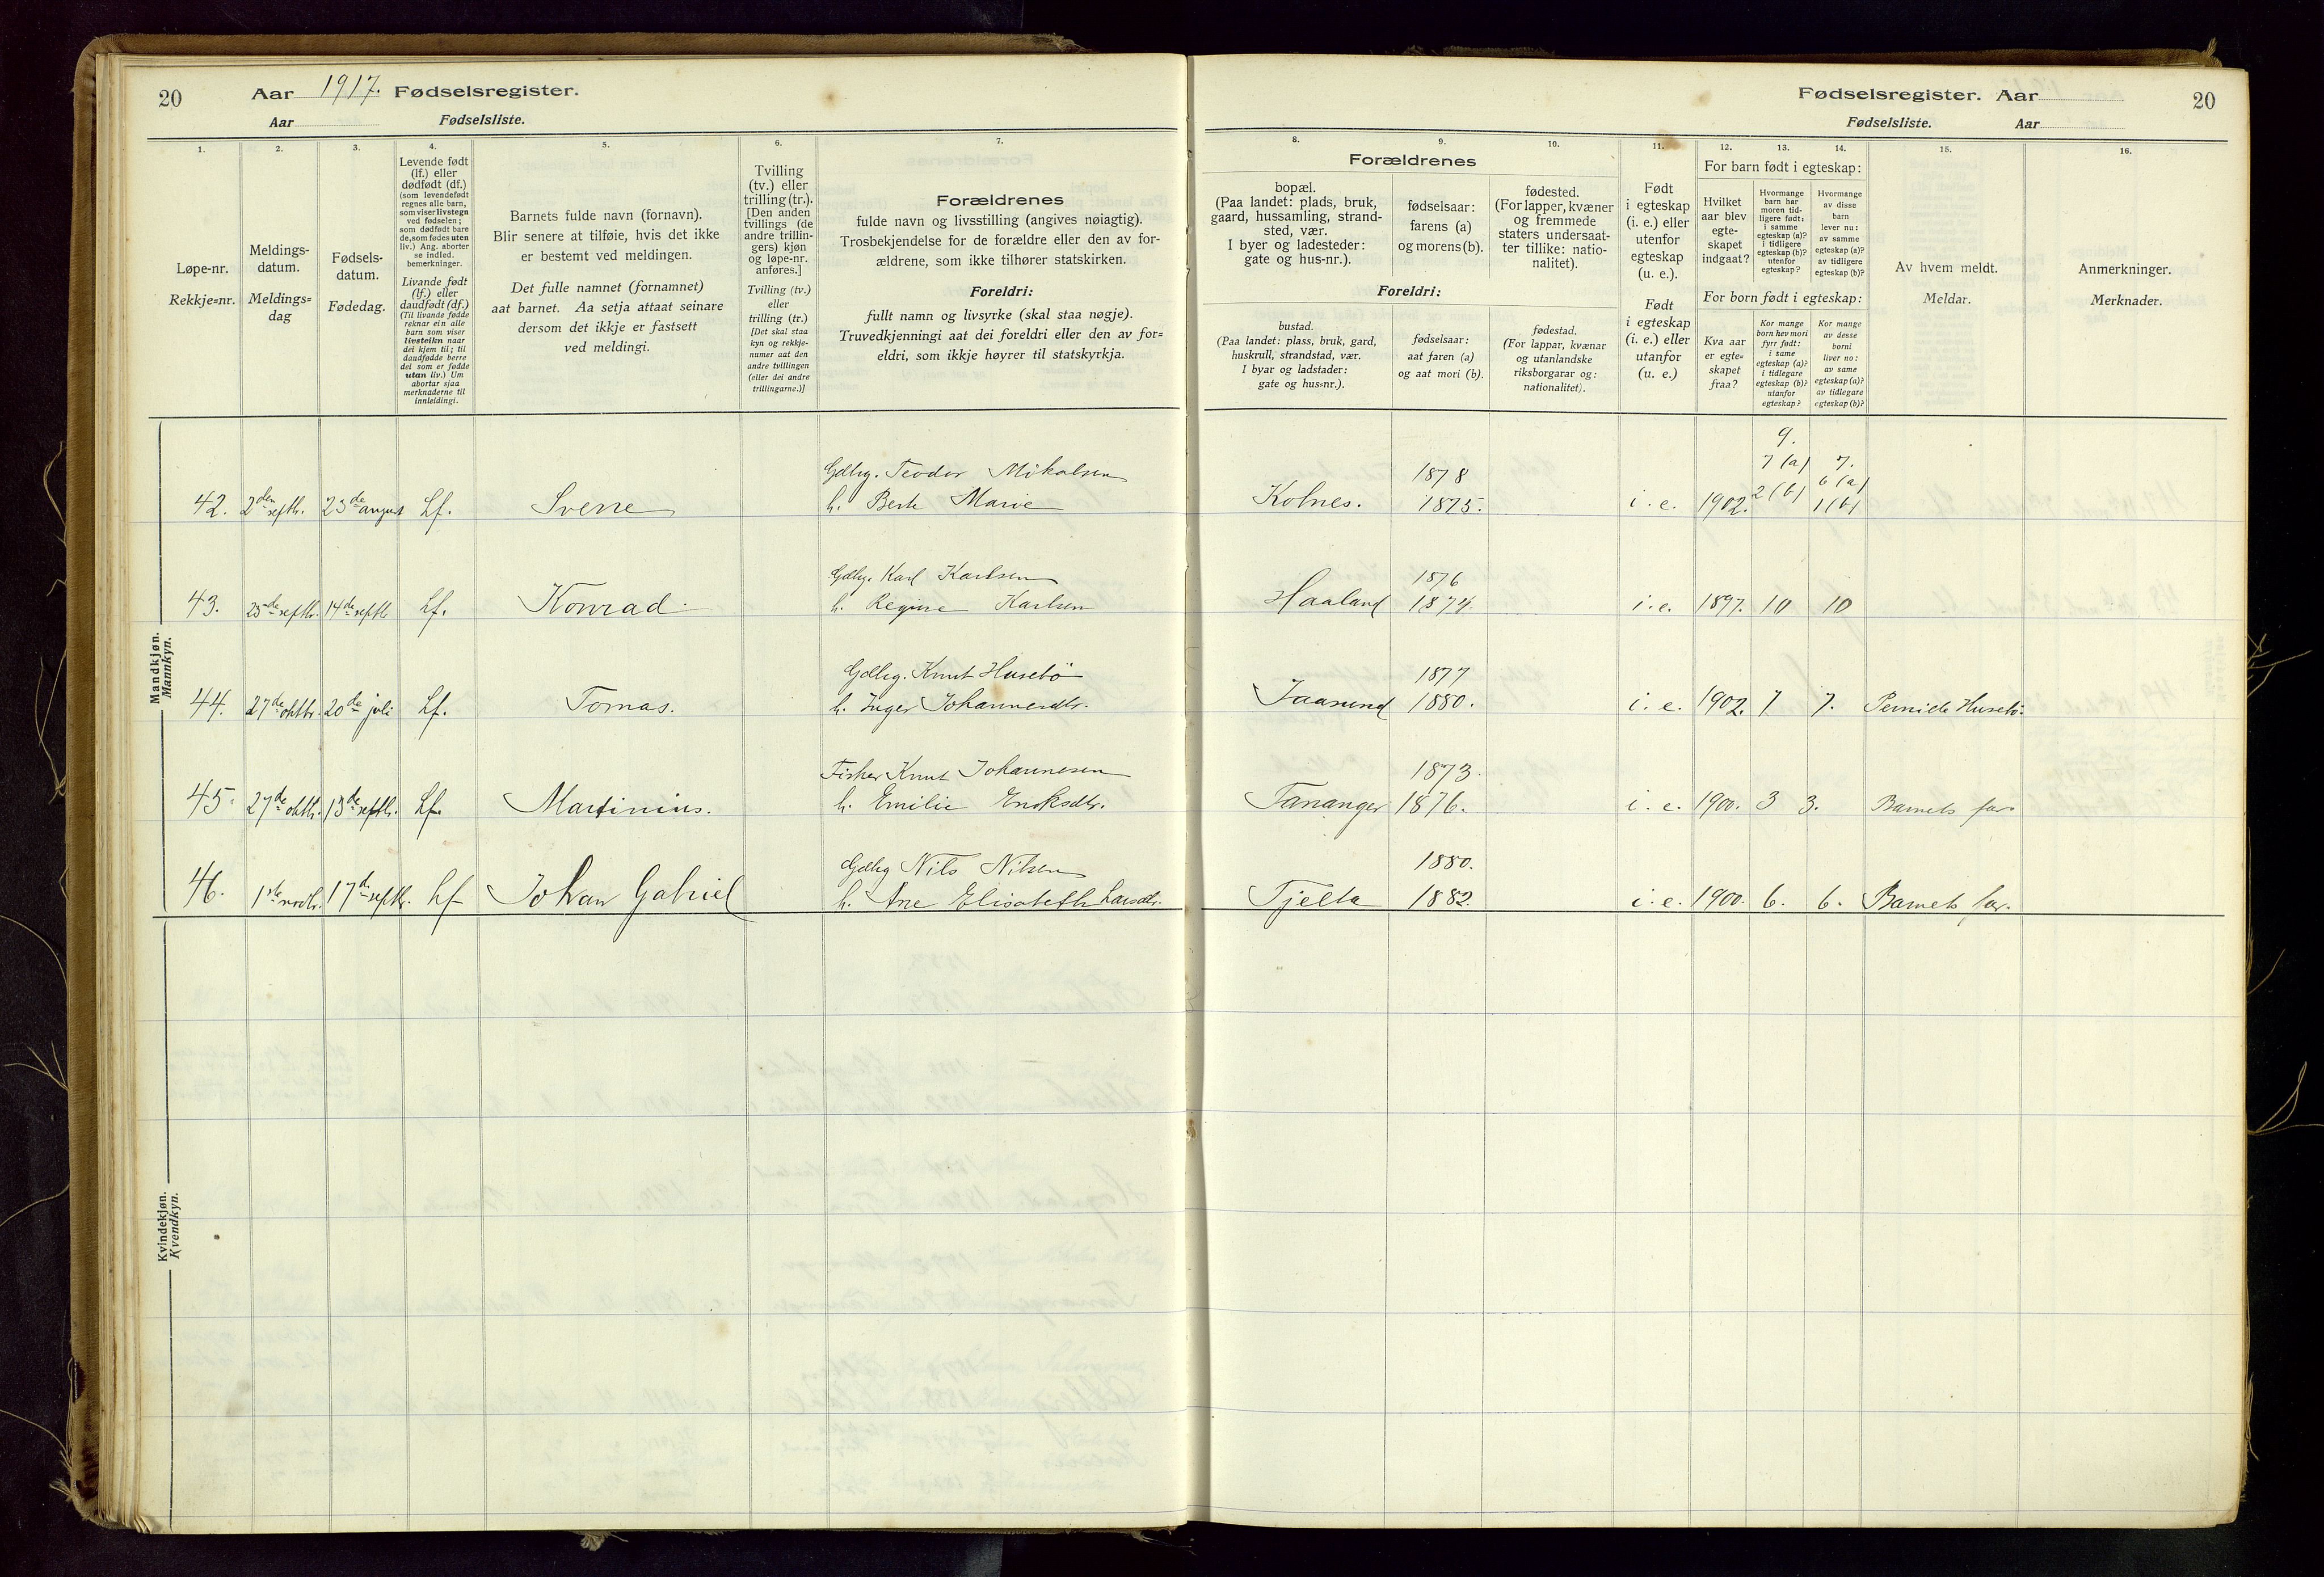 20
Aar 1917. Fødselsregister.
Aar Fødselsliste.
1.
Løpe-nr.
Rekkje=nr.
2.
Meldings-
datum.
Meldings=
dag
3.
Fødsels-
datum.
Fødedag.
4.
Levende født
(lf.) eller
dødfødt (df.)
(som levendefødt
regnes alle barn,
som viser livstegn
ved fødselen;
som dødfødt bare
de, som fødes uten
liv.) Ang. aborter
se indled.
bemerkninger.
Livande født
(lf.) eller
daudfødt (df.)
(Til livande fødde
reknar ein alle
barn som viser
livsteikn naar
dei kjem til; til
daudfødde berre
dei som er fødde
utan liv.) Um
abortar sjaa
merknaderne til
innleidingi.
5.
Barnets fulde navn (fornavn).
Blir senere at tilføie, hvis det ikke
er bestemt ved meldingen.
Det fulle namnet (fornamnet)
aat barnet. Aa setja attaat seinare
dersom det ikkje er fastsett
ved meldingi.
6.
Tvilling
(tv.) eller
trilling (tr.).
[Den anden
tvillings (de
andre trillin-
gers) kjøn
og løpe-nr.
anføres.]
Tvilling (tv.)
eller
trilling (tr.)
[Det skal staa
kyn og rekkje-
numer aat den
andre tvillingen
(eller dei andre
trillingarne.)]
7.
Forældrenes
fulde navn og livsstilling (angives nøiagtig).
Trosbekjendelse for de forældre eller den av for-
ældrene, som ikke tilhører statskirken.
Foreldri:
fullt namn og livsyrke (skal staa nøgje).
Truvedkjenningi aat dei foreldri eller den av for-
eldri, som ikkje høyrer til statskyrkja.
Mandkjøn.
Mannkyn.
Gdbrg. Teodor Mikalsen
42. 2den septbr. 23de august Lf. Sverre h. Berte Marie
Gdbrg. Karl Karlsen
43. 25de septbr. 14de septbr Lf. Konrad. h. Regine Karlsen
Gdbrg. Knut Husebö
44. 27de oktbr. 20de juli Lf. Tomas. h. Inger Johannesdtr.
Fisker Knut Johannesen
45. 27de oktbr. 13de septbr. Lf. Martinius. h. Emilie Enoksdtr.
Gdbrg Nils Nilsen
46. 1ste novbr. 17de septbr. Lf Johan Gabriel h. Ane Elisabeth Larsdtr.
Kvindekjøn.
Kvendkyn.
Fødselsregister. Aar 20
Fødselsliste. Aar
8.
Forældrenes
bopæl.
(Paa landet: plads, bruk,
gaard, hussamling, strand-
sted, vær.
I byer og ladesteder:
gate og hus-nr.).
Foreldri:
bustad.
(Paa landet: plass, bruk, gard,
huskrull, strandstad, vær.
I byar og ladstader:
gate og hus=nr.).
9.
fødselsaar:
farens (a)
og morens (b).
fødselsaar:
aat faren (a)
og aat mori (b).
10.
fødested.
(For lapper, kvæner
og fremmede
staters undersaat-
ter tillike: natio-
nalitet).
fødestad.
(For lappar, kvænar
og utanlandske
riksborgarar og:
nationalitet).
11.
Født
i egteskap
(i. e.) eller
utenfor
egteskap
(u. e.).
Født
i egteskap
(i. e.) eller
utanfor
(u. e.)
12.
For barn født i egteskap:
Hvilket
aar blev
egte-
skapet
indgaat?
For born født i egteskap:
Kva aar
er egte=
skapet
fraa?
13.
Hvormange
barn har
moren tid-
ligere født:
i samme
egteskap (a)?
i tidligere
egteskap (b)?
utenfor
egteskap?
Kor mange
born hev mori
fyrr født:
i same
egteskap (a)?
i tidlegare
egteskap (b)?
utanfor
egteskap?
14.
Hvormange
av disse
barn
lever nu:
av samme
egteskap (a)?
av tidligere
egteskap (b)?
Kor mange
av desse
borni
liver no:
av same
egteskap (a)?
av tidlegare
egteskap (b)?
15.
Av hvem meldt.
Meldar.
16.
Anmerkninger.
Merknader.
9.
1878 7 (a) 7.
6 (a)
Kolnes. 1875. i. e. 1902. 2 (b) 1 (b)
1876
Haaland 1874. i. e. 1897. 10 10
1877
Jaasund 1880. i. e. 1902. 7 7. Pernille Husebö.
1873.
Tananger 1876. i. e. 1900. 3 3. Barnets far.
1880.
Tjelta 1882. i. e. 1900. 6. 6. Barnets far.